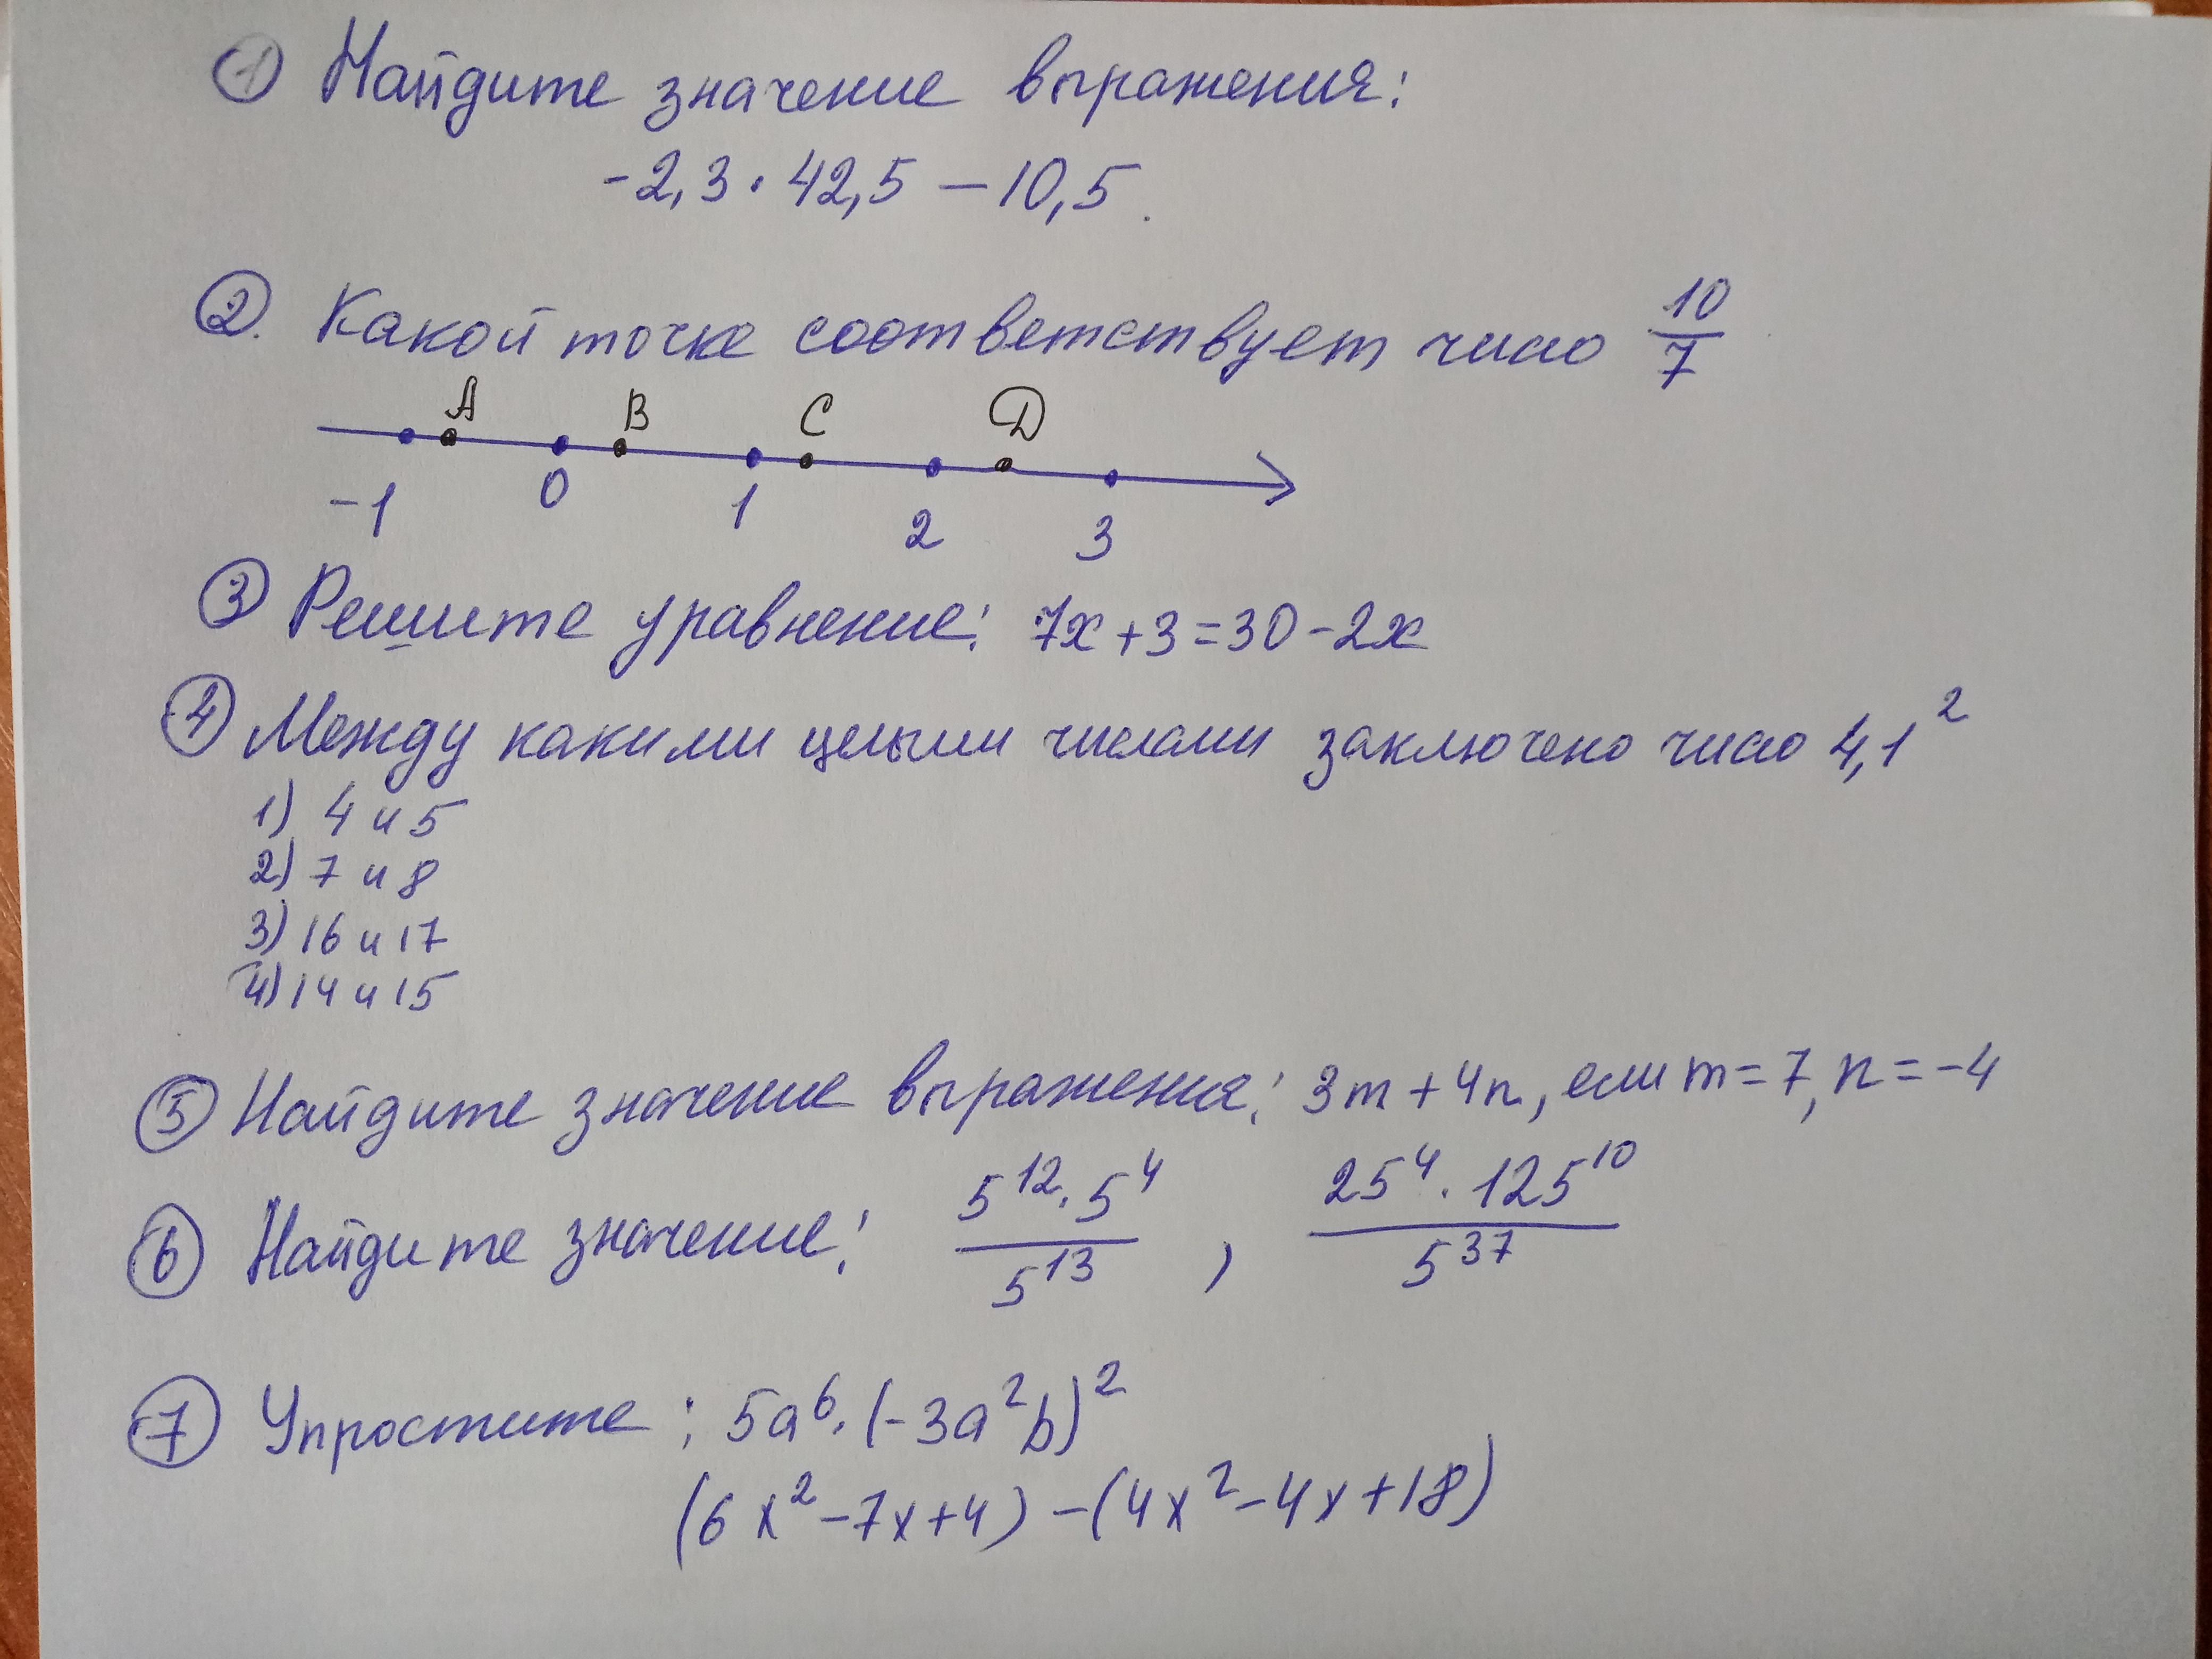 ① Найдите значение выражения:
-2,3 · 42,5 – 10,5.
②. Какой точке соответствует число 10/7
A B C D
-1 0 1 2 3
③ Решите уравнение: 7x + 3 = 30 - 2x
④ Между какими целыми числами заключено число 4,1²
1) 4 и 5
2) 7 и 8
3) 16 и 17
4) 14 и 15
⑤ Найдите значение выражения: 3m + 4n, если m = 7, n = -4
⑥ Найдите значение: (5¹² · 5⁴)/5¹³ , (25⁴ · 125¹⁰)/5³⁷
⑦ Упростите: 5a⁶ · (-3a²b)²
(6x² - 7x + 4) - (4x² - 4x + 18)